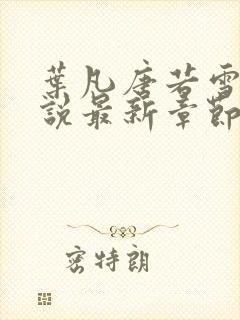 葉凡唐若雪
說最新章節
密特朗